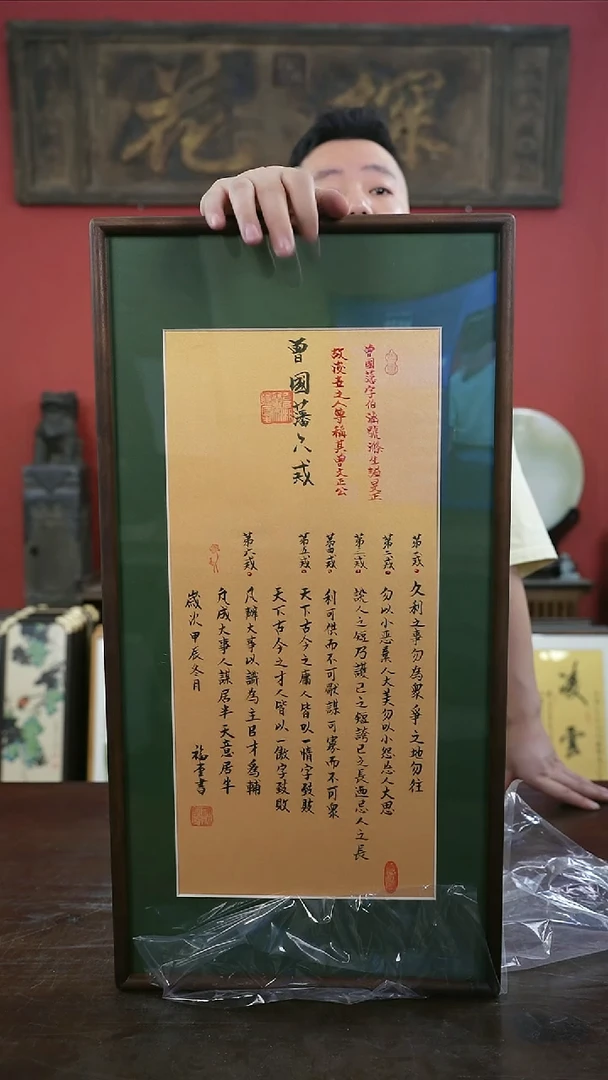 探花
曾國藩字伯涵號滌生謚文正
故後世之人尊稱其曾文正公
曾國藩六戒
第一戒 久利之事勿為衆爭之地勿往
第二戒 勿以小惡棄人大美勿以小怨忘人大恩
第三戒 說人之短乃護己之短誇己之長乃忌人之長
第四戒 利可供而不可獨謀可寡而不可衆
第五戒 天下古今之庸人皆以一惰字致敗
天下古今之才人皆以一傲字致敗
第六戒 凡辦大事以識為主以才為輔
凡成大事人謀居半天意居半
歲次甲辰冬月
書
凌雲